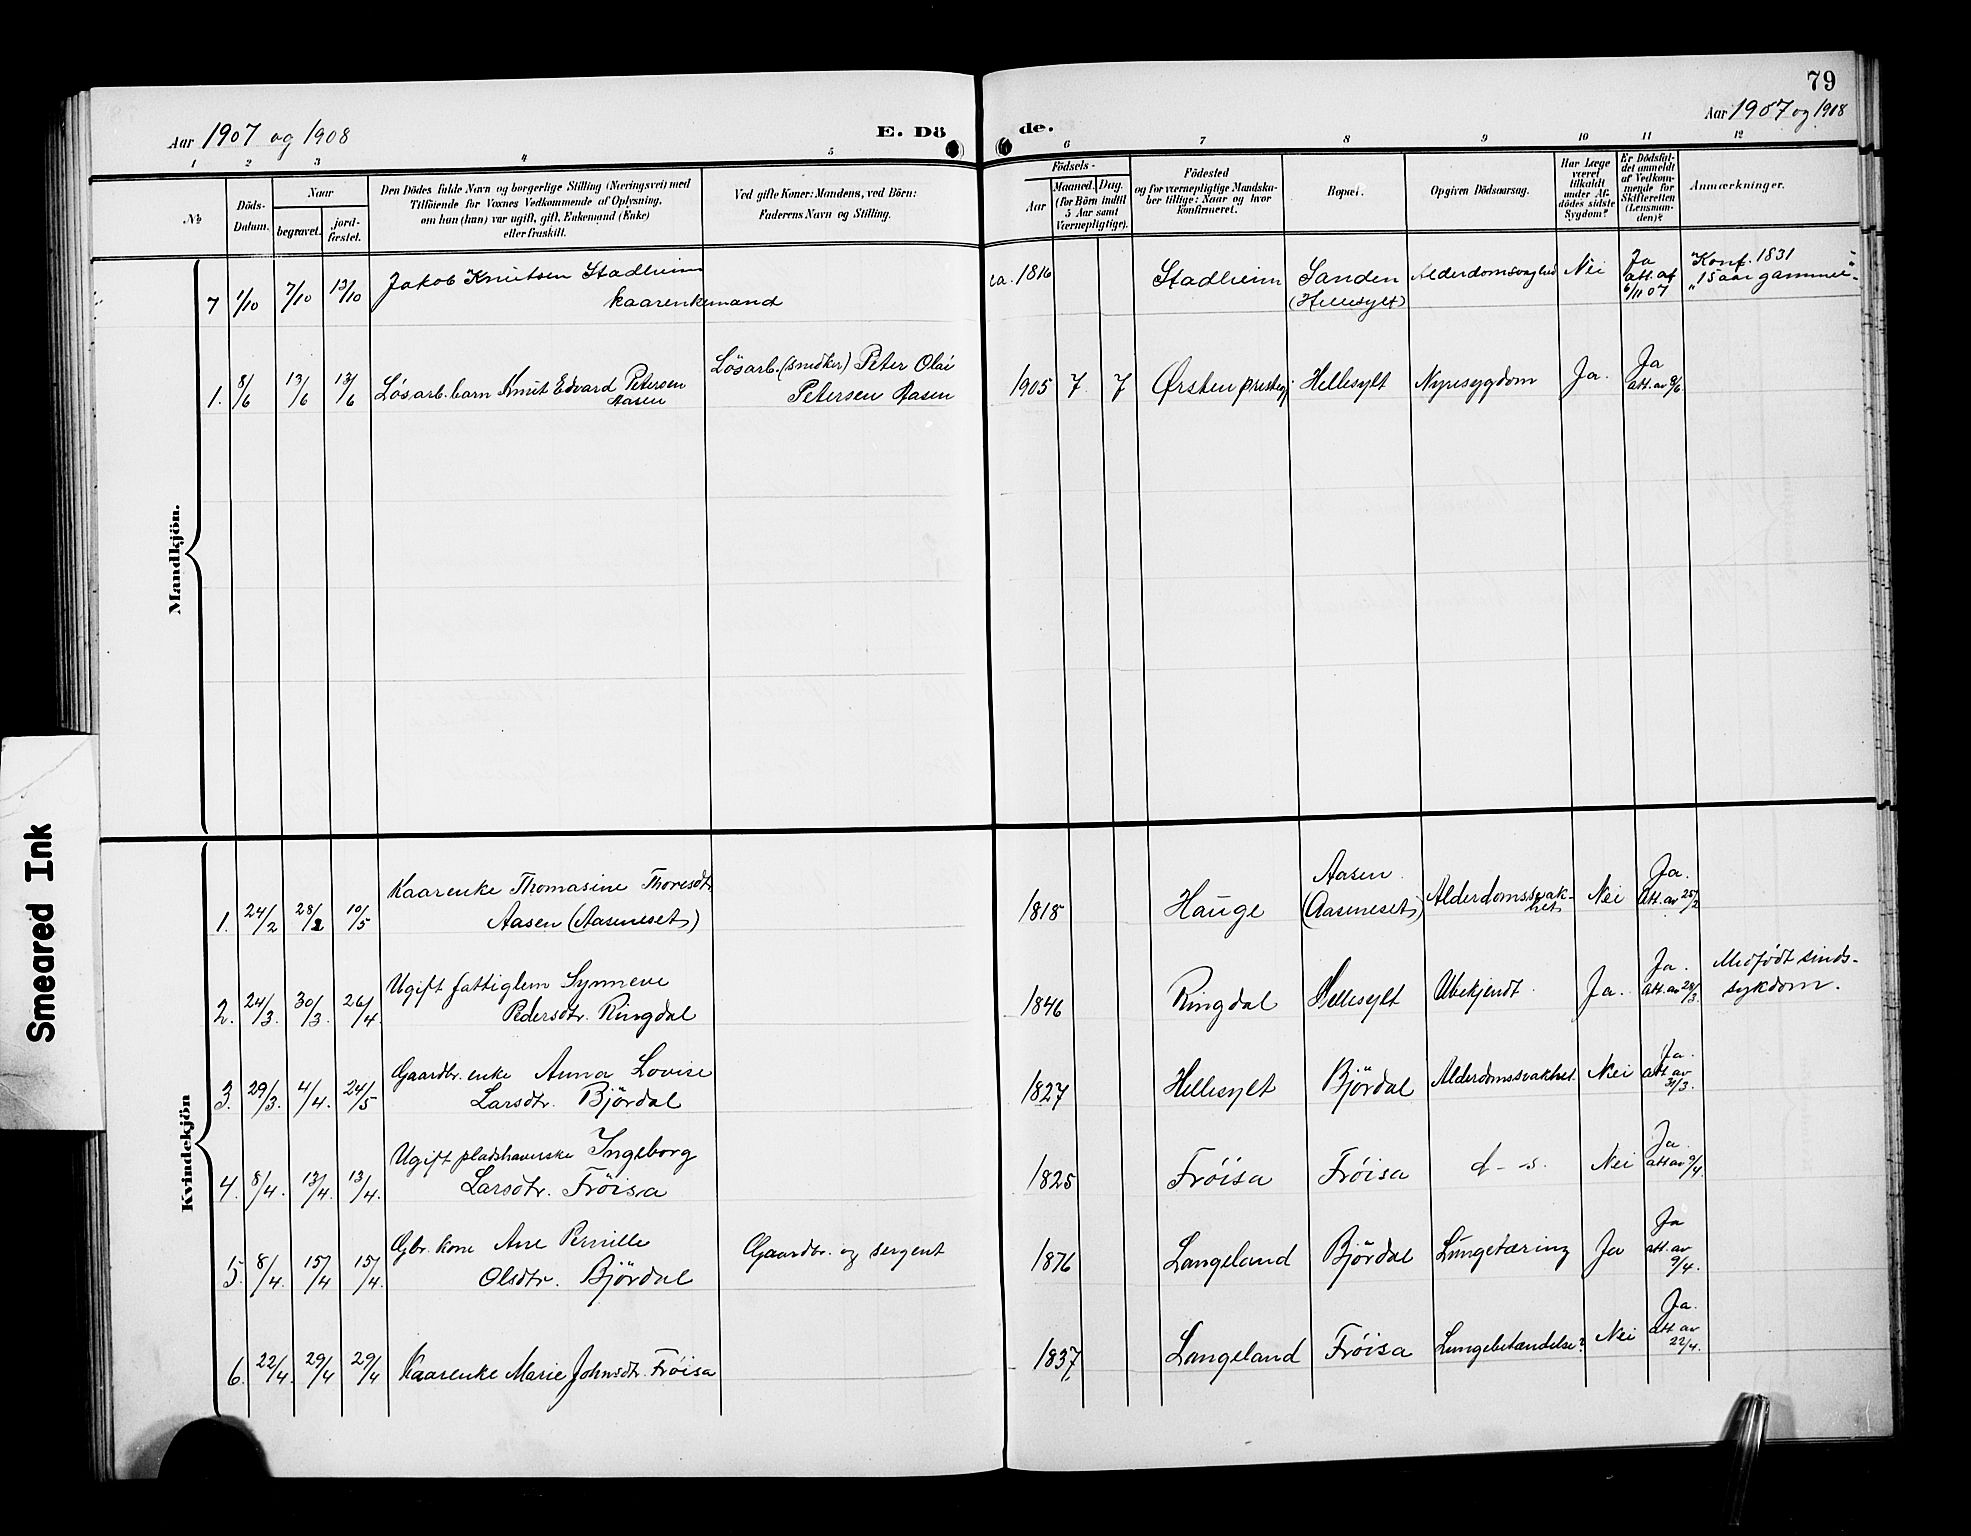 79
Aar 1907 og 1908
E. Dö
de.
Aar 1907 og 1908
1 2 3 4 5 6 7 8 9 10 11 12
№
Döds-
Datum.
Naar
begravet.
jord-
fæstet.
Den Dödes fulde Navn og borgerlige Stilling (Næringsvei) med
Tilföiende for Voxnes Vedkommende af Oplysning,
om han (hun) var ugift, gift, Enkemand (Enke)
eller fraskilt.
Ved gifte Koner: Mandens, ved Börn:
Faderens Navn og Stilling.
Födsels-
Aar
Maaned. Dag.
(for Börn indtil
5 Aar samt
Værnepligtige).
Födested
og for værnepligtige Mandska-
ber tillige: Naar og hvor
konfirmeret.
Bopæl.
Opgiven Dödsaarsag.
Har Læge
været
tilkaldt
under Af-
dödes sidste
Sygdom?
Er Dödsfal-
det anmeldt
af Vedkom-
mende for
Skifteretten
(Lensman-
den)?
Anmærkninger.
Mandkjön.
7 1/10 7/10 13/10 Jakob Knutsen Stadheim
kaarenkemand
ca. 1816 Stadheim Sanden
(Hellesylt)
Alderdomsvaghed Nei Ja
att. af
6/11 07
"Konf. 1831
"15 aar gammel"
1. 8/6 13/6 13/6 Lösarb. barn Knut Edvard Petersen
Aasen
Lösarb. (snedker) Peter Olai
Petersen Aasen
1905 7 7 Ørsten præstegj. Hellesylt Nyresygdom Ja. Ja
att. av 9/6
Kvindekjön
1. 24/2 28/2 10/5 Kaarenke Thomasine Thoresdtr
Aasen (Aaseneset)
1818 Hauge Aasen
(Aaseneset)
Alderdomssvak-
het
Nei Ja.
att. av 25/2
2. 24/3. 30/3 26/4 Ugift fattiglem Synneve
Pedersdtr. Ringdal
1846 Ringdal Hellesylt Ubekjendt. Ja. Ja.
att. av 28/3.
Medfödt sinds-
sykdom.
3. 29/3. 4/4. 24/5 Gaardbr. enke Anna Lovise
Larsdtr. Björdal
1827 Hellesylt Björdal Alderdomssvakhet. Nei Ja.
att. av
31/3.
4. 8/4. 13/4. 13/4. Ugift pladshaverske Ingeborg
Larsdtr. Fröisa
1825 Fröisa Fröisa d- -s. Nei Ja.
att av 9/4.
5. 8/4. 15/4 15/4. Gbr. kone Ane Pernille
Olsdtr. Björdal
Gaardbr. og sergent
1876 Langeland Björdal Lungetæring Ja Ja
att. av
9/4.
6. 22/4. 29/4 29/4 Kaarenke Marie Johnsdtr. Fröisa
1837 Langeland Fröisa Lungebetændelse? Nei Ja.
att. av
22/4.
Smeared Ink